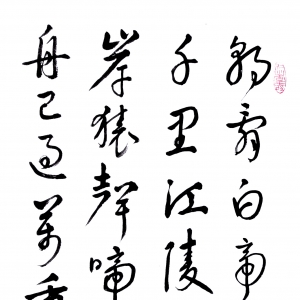 朝辭白帝
千里江陵
岸猿聲啼
舟已過萬重